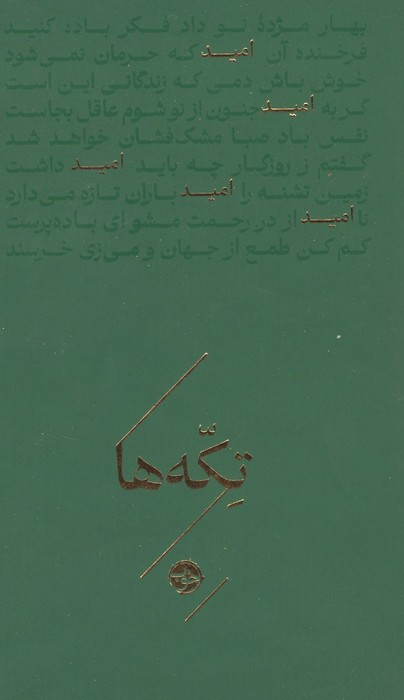 بهار مژدهٔ نو داد فکر باده کنید
فرخنده آن امید که حرمان نمی‌شود
خوش باش دمی که زندگانی این است
گر به امید جنون از نو شوم عاقل بجاست
نفس باد صبا مشک‌فشان خواهد شد
گفتم ز روزگار چه باید امید داشت
زمین تشنه را امید باران تازه می‌دارد
نا امید از در رحمت مشو ای باده‌پرست
کم کن طمع از جهان و می‌زی خرسند
تِکّه‌ها